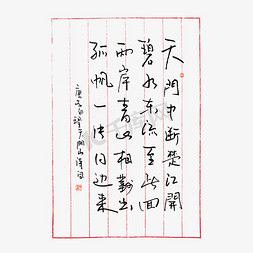 天門中斷楚江開
碧水東流至此回
兩岸青山相對出
孤帆一片日邊來
唐李白望天門山詩句